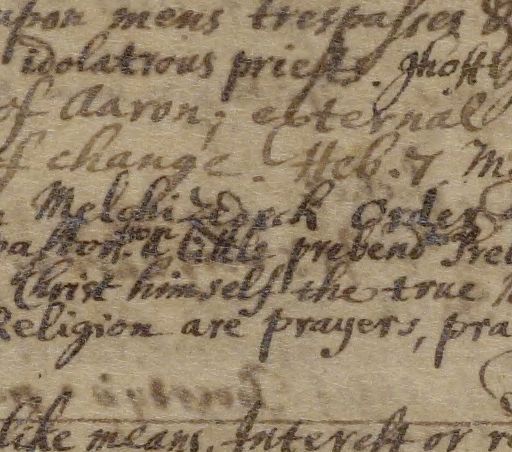 upon mens trespasses &
idolatrous priests.
of Aaron; external
of change. Heb. 7
Melchizedeck Order
a little prebend
Christ himself the true
Religion are prayers, pra
like means, Interest or